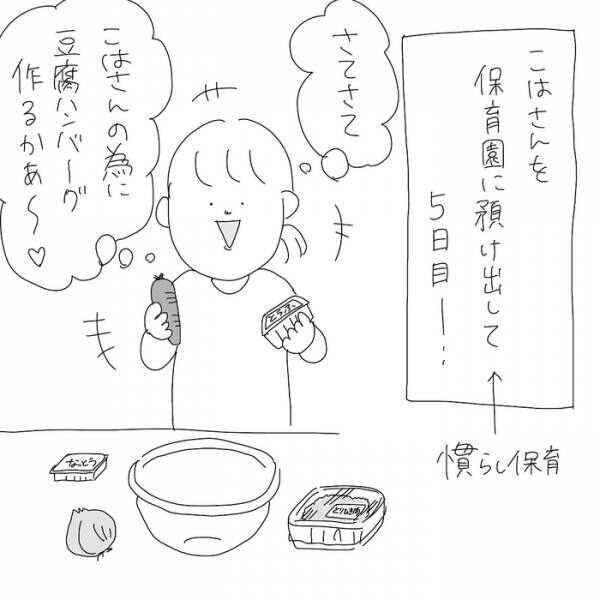 こはさんを
保育園に預け出して
5日目ー！
慣らし保育
さてさて
こはさんの為に
豆腐ハンバーグ
作るかぁ〜♡
とうふ
なっとう
とりひき肉